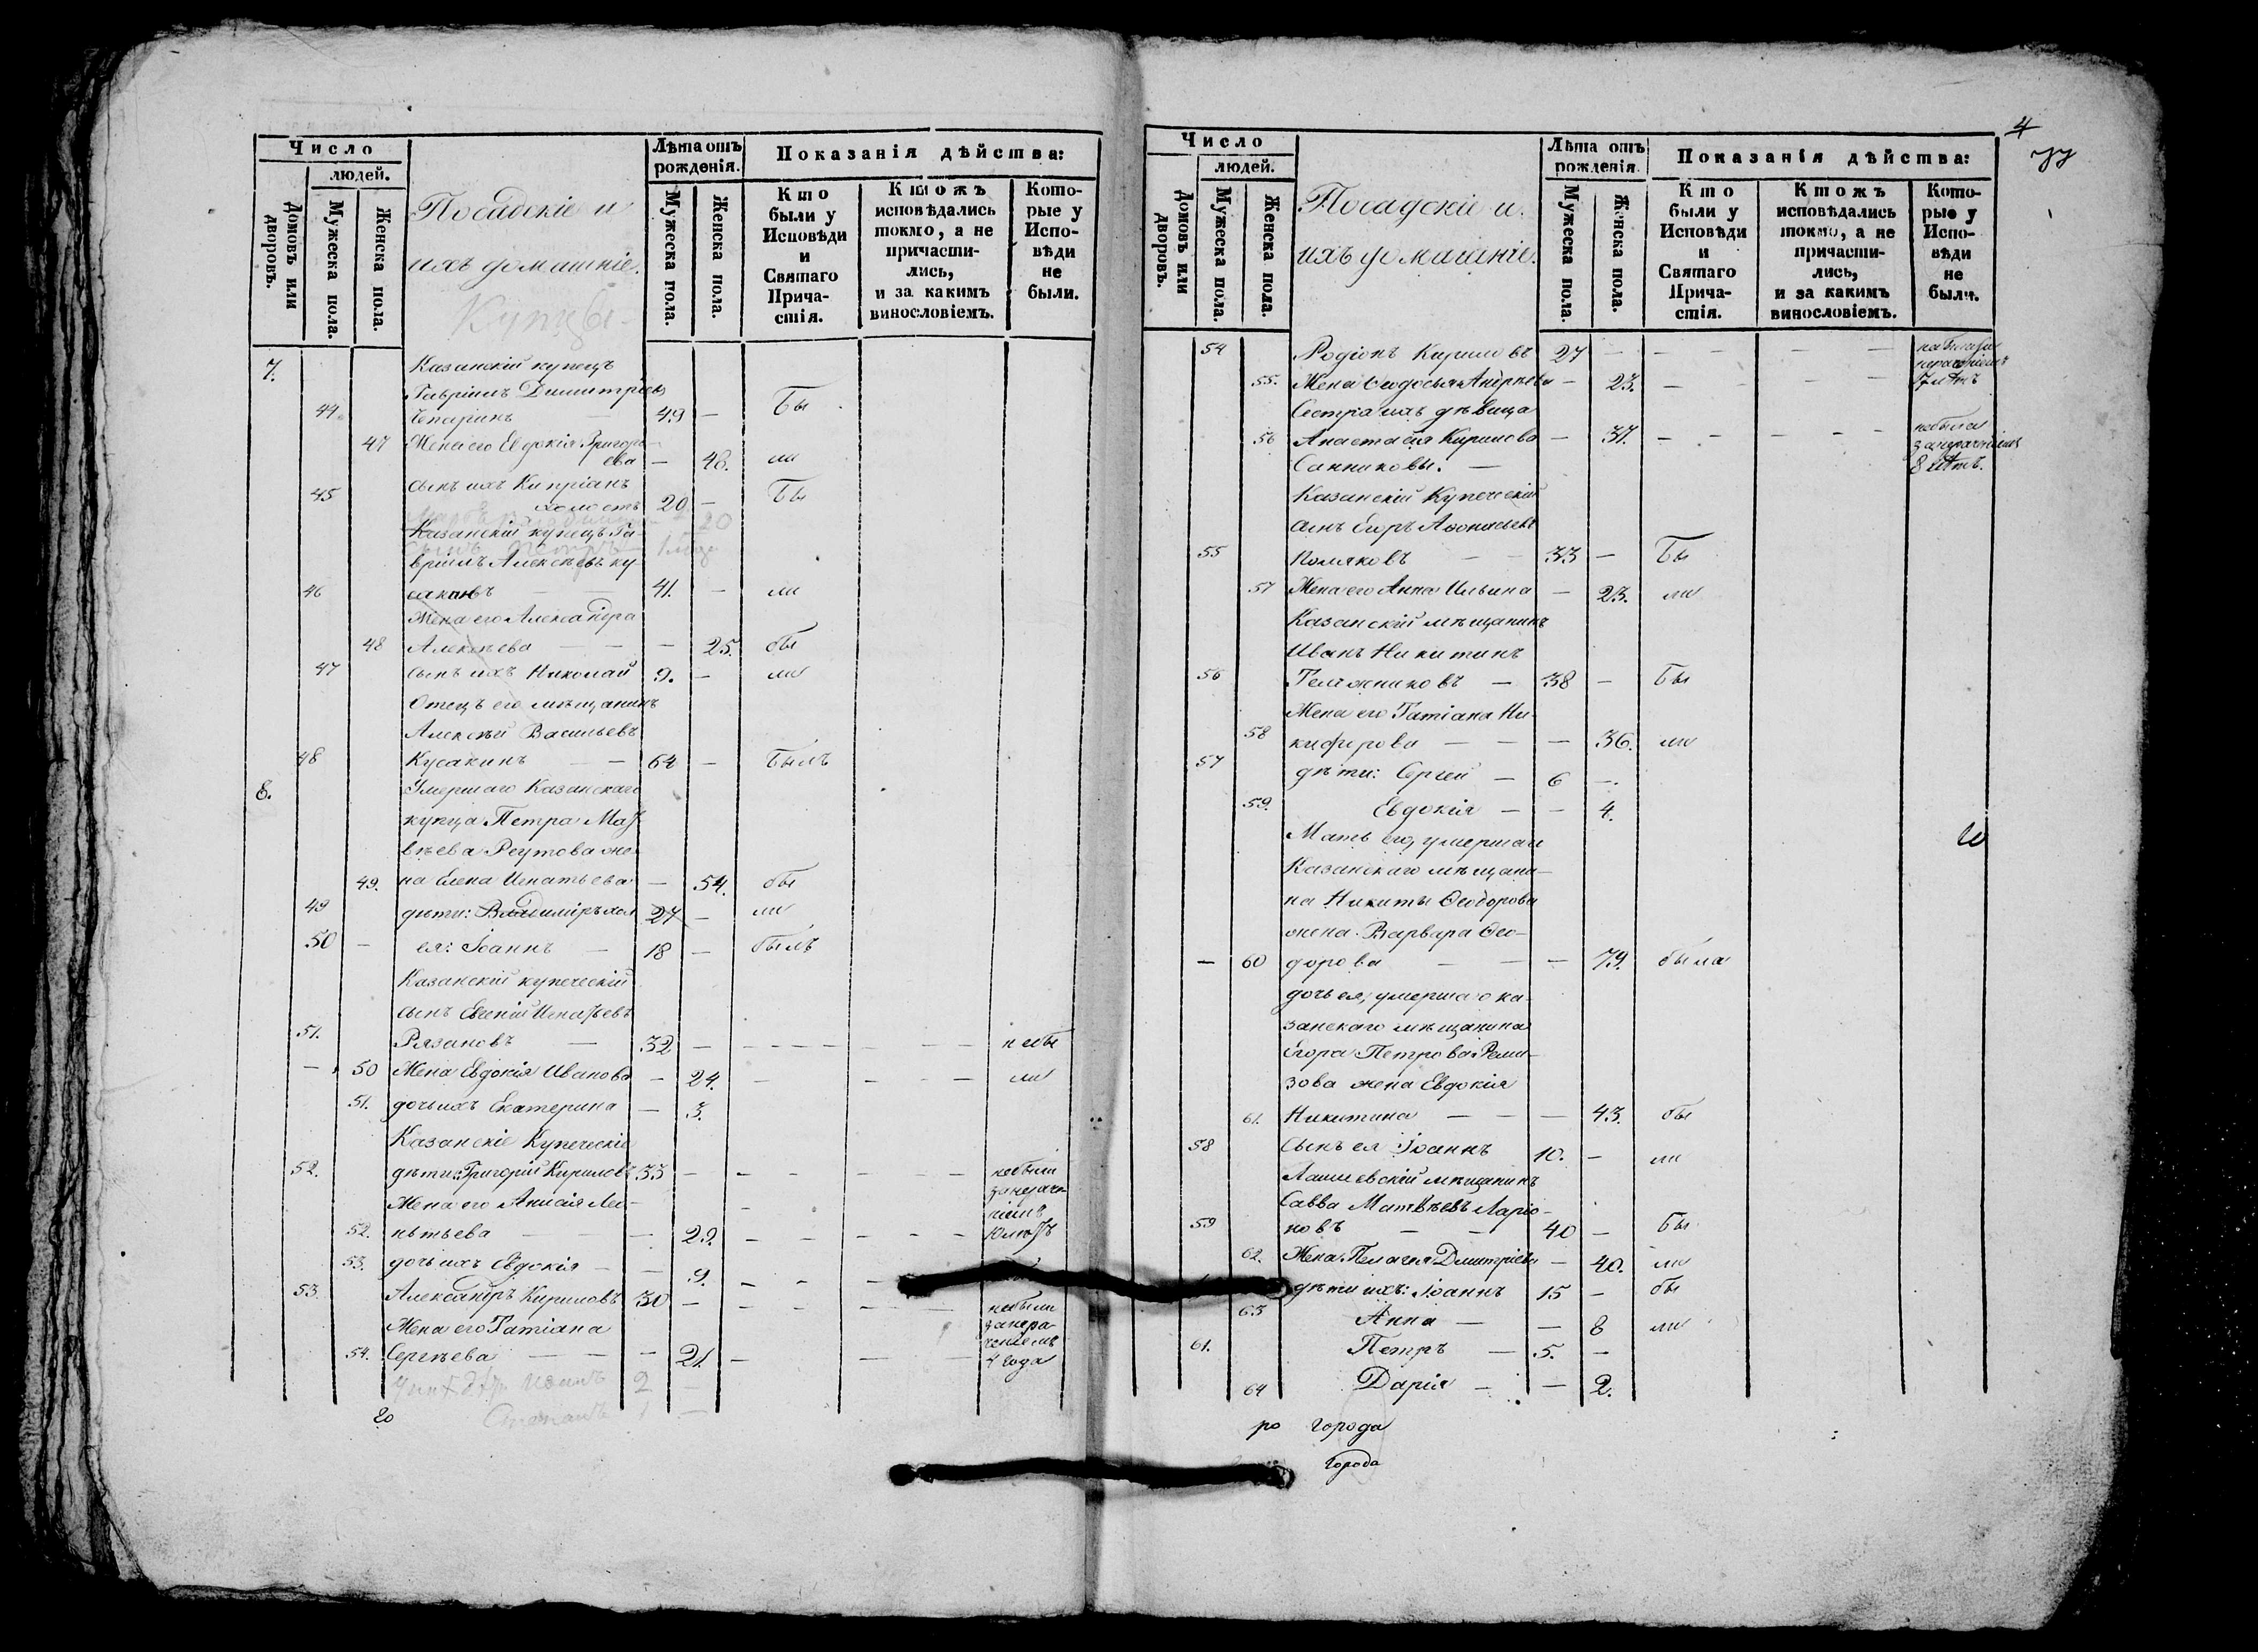 Число
людей.
Домовъ или дворовъ.
Мужеска пола.
Женска пола.
Посадскіе и
ихъ домашніе.
Купцы
Лѣта отъ рожденія.
Мужеска пола.
Женска пола.
Показанія дѣйства:
Кто были у Исповѣди и Святаго Причастія.
Ктожъ исповѣдались токмо, а не причастились, и за какимъ винословіемъ.
Которые у Исповѣди не были.
7. Казанскій купецъ
Гавріилъ Димитріевъ
44. Чепаринъ 49 — Бы
47 Жена его Евдокія Григорь-
ева — 48. ли
45 сынъ ихъ Кипріанъ
холостъ 20 — Бы
20
Казанскій купецъ Га-
вріилъ Алексѣевъ Ку-
46 сакинъ 41. — ли
Жена его Александра
48 Алексѣева — 25. бы
47 сынъ ихъ Николай 9. — ли
Отецъ его мѣщанинъ
Алексѣй Васильевъ
48 Кусакинъ — 64 — Былъ
8. Умершаго Казанскаго
купца Петра Мат-
вѣева Реутова же-
49. на Елена Игнатьева — 54. бы
49 дѣти: Владиміръ хол 27 — ли
50 — ея: Іоаннъ — 18 — былъ
Казанскій купеческій
сынъ Евгеній Игнатьевъ
51. Рязановъ — 32 — небы
— 50 Жена Евдокія Иванова — 24. — ли
51. дочь ихъ Екатерина — 3.
Казанскіе Купеческіе
52. дѣти: Григорій Кириловъ 33 — небыли
Жена его Анисія Ле-
52. нтьева — 29. —
53. дочь ихъ Евдокія — 9. —
53. Александръ Кириловъ 30 — небыли
Жена его Татіана
занера-
ченіемъ
54. Сергѣева — 21. — 4 года
2
Степанъ 1 —
го
4
Число
людей.
Домовъ или дворовъ.
Мужеска пола.
Женска пола.
Посадскіе и
ихъ домашніе.
Лѣта отъ рожденія.
Мужеска пола.
Женска пола.
Показанія дѣйства:
Кто были у Исповѣди и Святаго Причастія.
Ктожъ исповѣдались токмо, а не причастились, и за какимъ винословіемъ.
Которые у Исповѣди не были.
54 Родіонъ Кириловъ 27 —
55. Жена Ѳеодосья — 23. — 7 лѣтъ
Сестра ихъ дѣвица
56 Анастасія Кирилова — 37. — небыла
Санниковы. — 8 лѣтъ.
Казанскій Купеческій
сынъ Егоръ Аѳонасьевъ
55 Поляковъ — 33 — Бы
57 Жена его Анна Ильина — 23. ли
Казанскій мѣщанинъ
Иванъ Никитинъ
56 — 38 — Бы
Жена его Татіана Ни-
58 кифорова — 36. ли
57 дѣти: Сергей — 6 —
59. Евдокія — 4.
Мать его, умершаго
Казанскаго мѣщани-
на Никиты Ѳеодорова
жена Варвара Ѳео-
— 60 дорова — 79. была
дочь ея, умершаго ка-
занскаго мѣщанина
Егора Петрова Реми-
зова жена Евдокія
61. Никитина — 43. бы
58 Сынъ ея Іоаннъ 10. — ли
Лаишевскій мѣщанинъ
Савва Матвѣевъ Ларіо-
59 новъ — 40 — Бы
62. Жена Пелагея Дмитріева — 40. ли
дѣти ихъ: Іоаннъ 15 — бы
63 Анна — 8 ли
61. Петръ — 5. —
64 Дарія — 2.
ро города
города